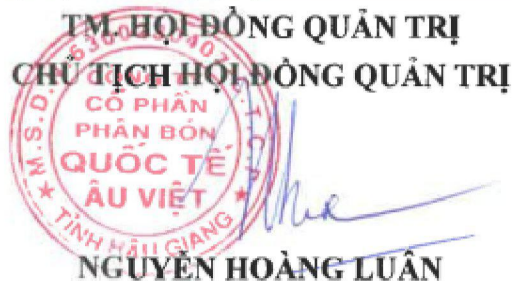 TM. HỘI ĐỒNG QUẢN TRỊ
CHỦ TỊCH HỘI ĐỒNG QUẢN TRỊ
CÔNG TY
CỔ PHẦN
PHÂN BÓN
QUỐC TẾ
ÂU VIỆT
TỈNH HẬU GIANG
NGUYỄN HOÀNG LUÂN